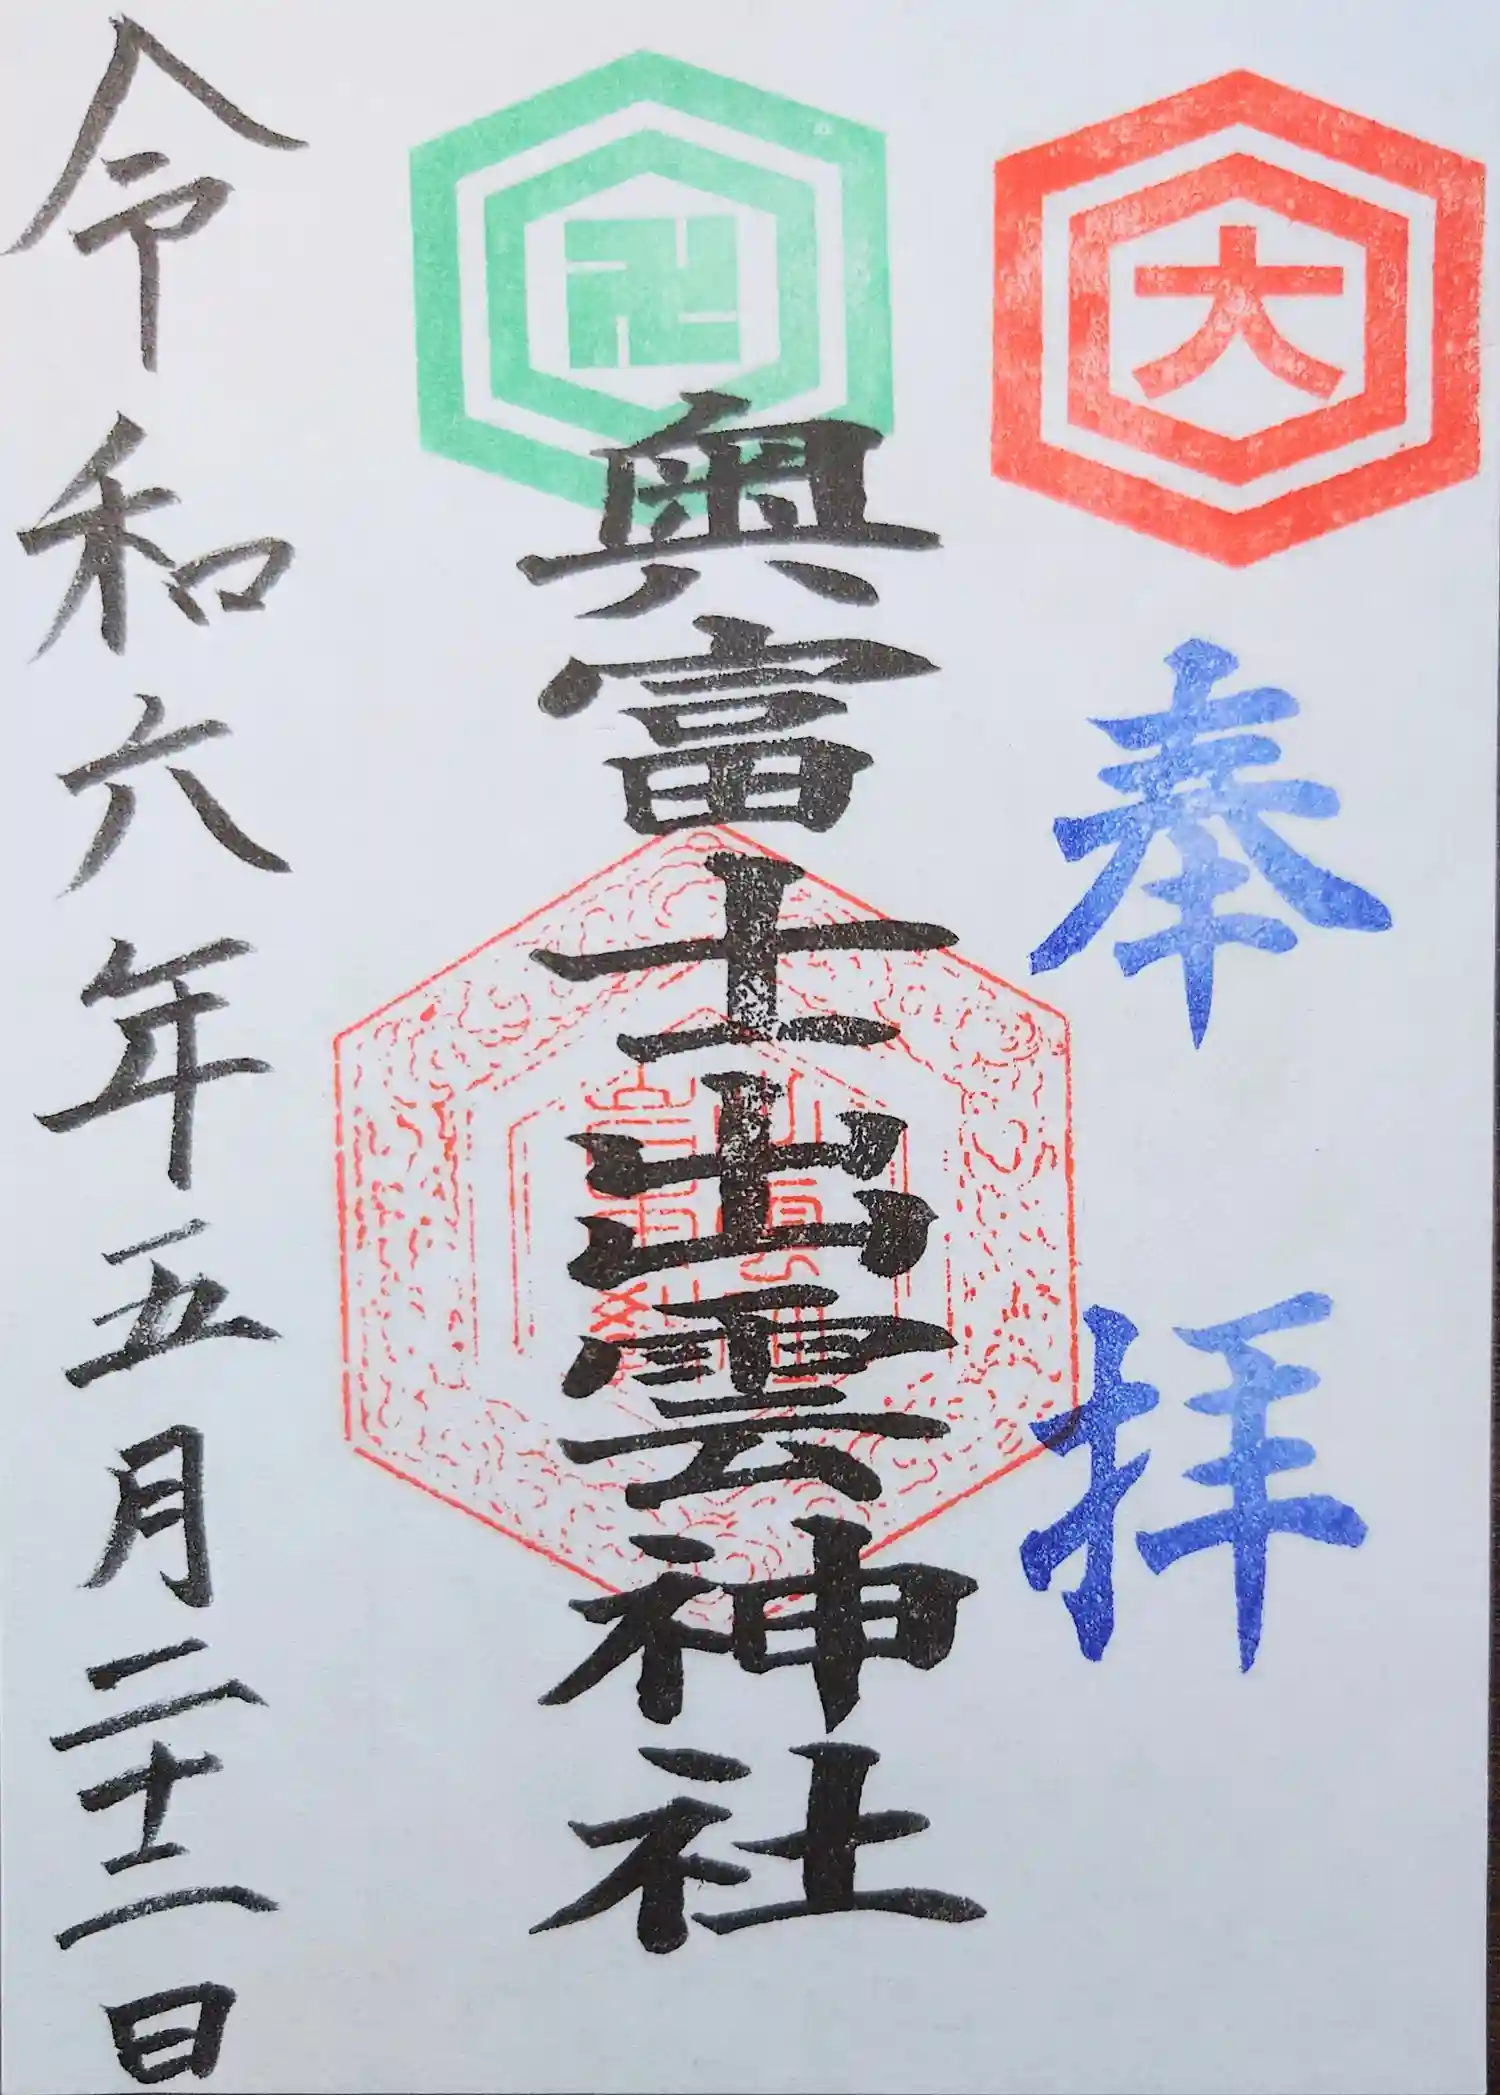 大
奉拝
奥富士出雲神社
令和六年五月二十二日